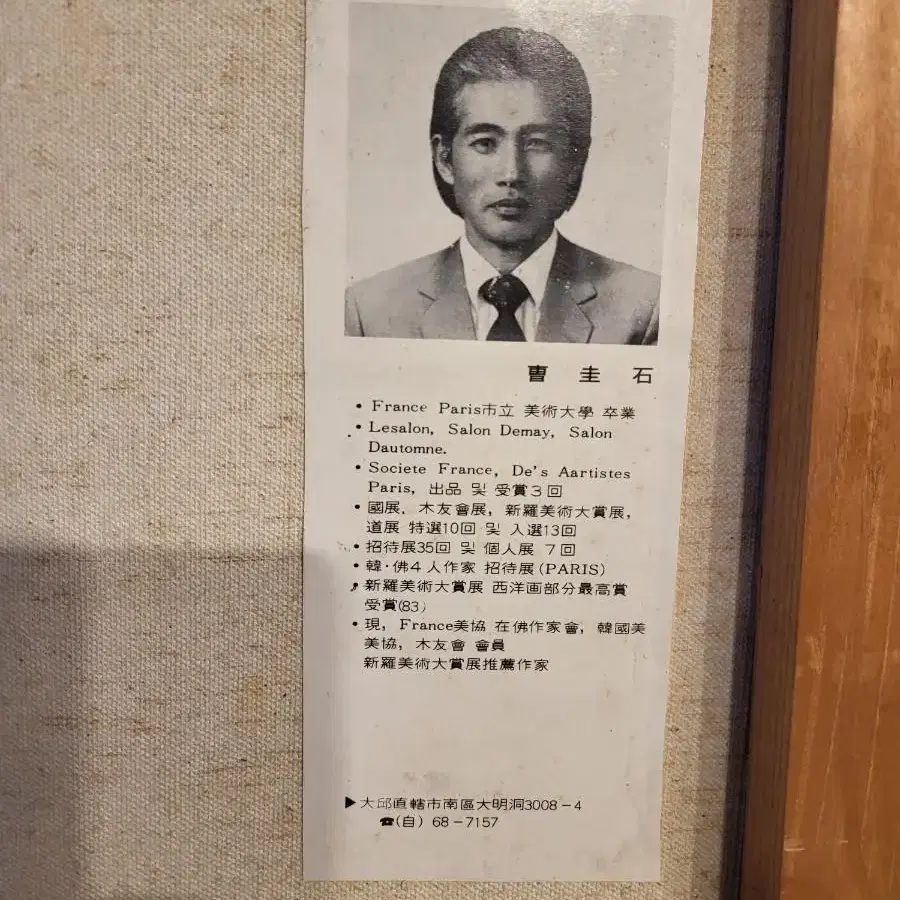 曺 圭 石
• France Paris市立 美術大學 卒業
• Lesalon, Salon Demay, Salon
Dautomne.
• Societe France, De's Aartistes
Paris, 出品 및 受賞3回
• 國展, 木友會展, 新羅美術大賞展,
道展 特選10回 및 入選13回
• 招待展35回 및 個人展 7回
• 韓·佛4人作家 招待展(PARIS)
• 新羅美術大賞展 西洋画部分最高賞
受賞(83)
• 現, France美協 在佛作家會, 韓國美
美協, 木友會 會員
新羅美術大賞展推薦作家
▶大邱直轄市南區大明洞3008-4
☎(自) 68-7157